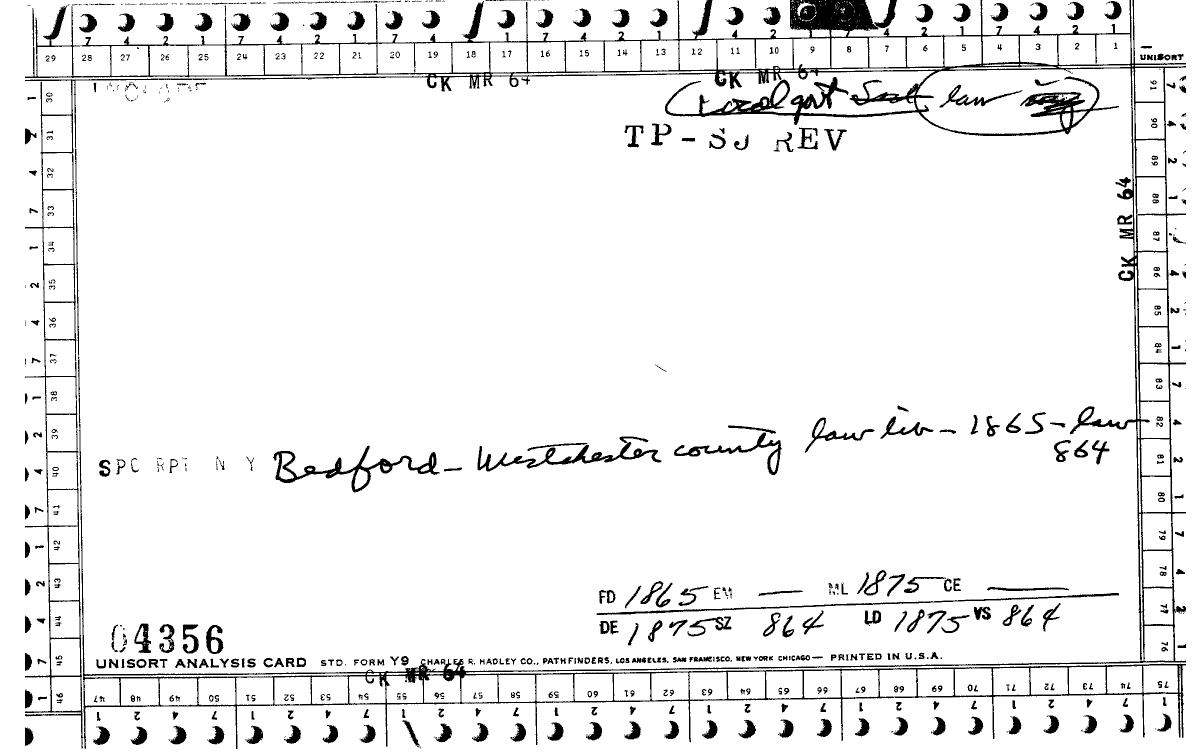 7 4 2 1 7 4 2 1 7 4 2 1 7 4 2 1 7 4 2 1 7 4 2 1
29 28 27 26 25 24 23 22 21 20 19 18 17 16 15 14 13 12 11 10 9 8 7 6 5 4 3 2 1
UNISORT
CK MR 64 CK MR 64
Local govt law
TP-SJ REV
CK MR 64
SPC RPT N Y Bedford - Westchester county law lib - 1865 - law
864
FD 1865 EM — ML 1875 CE —
DE 1875 SZ 864 LD 1875 VS 864
04356
UNISORT ANALYSIS CARD STD. FORM Y9 CHARLES R. HADLEY CO., PATHFINDERS, LOS ANGELES, SAN FRANCISCO, NEW YORK CHICAGO — PRINTED IN U.S.A.
CK MR 64
30 31 32 33 34 35 36 37 38 39 40 41 42 43 44 45 46
47 48 49 50 51 52 53 54 55 56 57 58 59 60 61 62 63 64 65 66 67 68 69 70 71 72 73 74 75
76 77 78 79 80 81 82 83 84 85 86 87 88 89 90 91